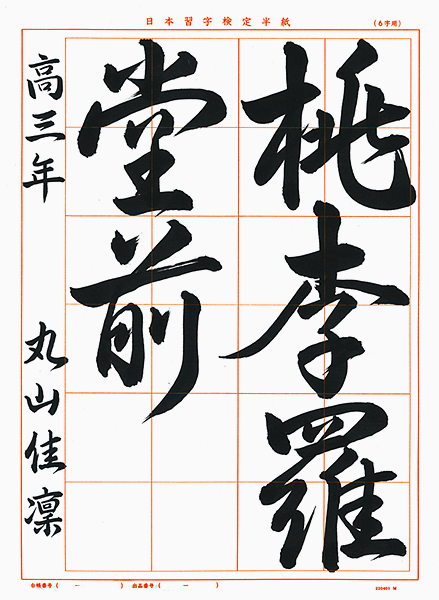 日本習字検定半紙
(6字用)
桃李羅
堂前
高三年 丸山佳凛
台帳番号 ( ー ) 出品番号 ( ー )